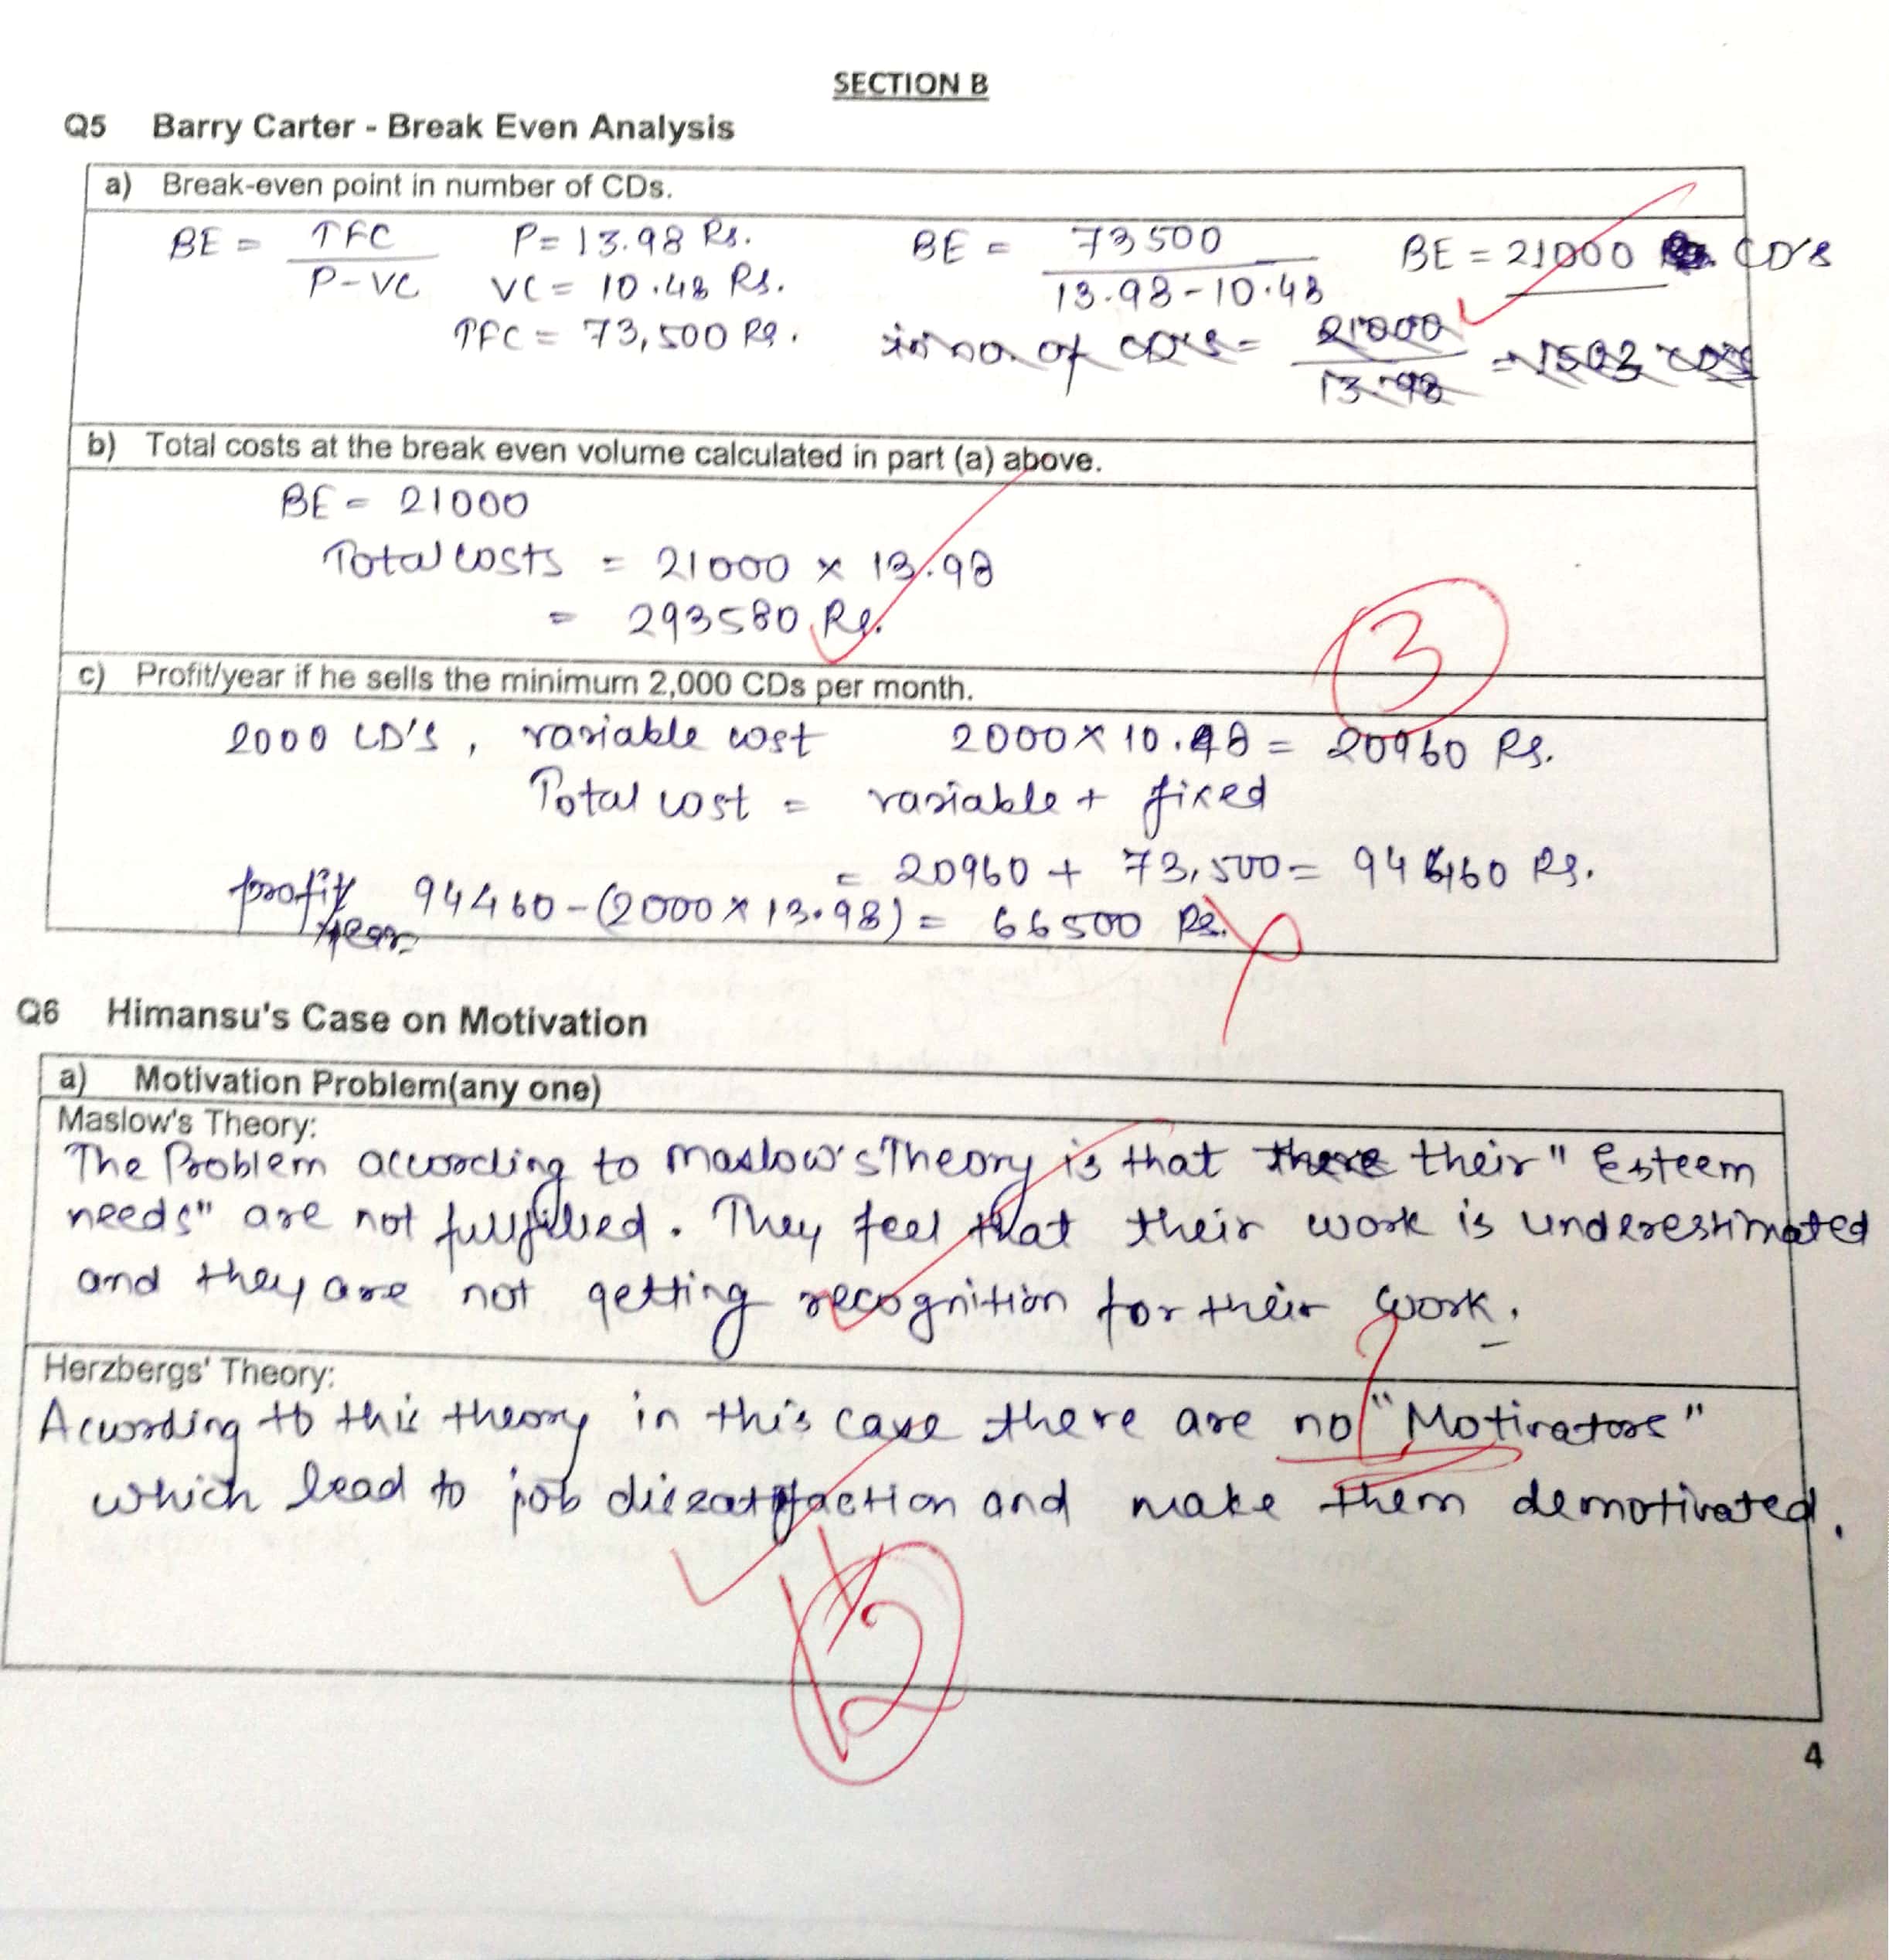 SECTION B
Q5 Barry Carter - Break Even Analysis
a) Break-even point in number of CDs.
BE = TFC / P-VC P = 13.98 Rs. BE = 73500 / 13.98-10.48 BE = 21000 CD's
VC = 10.48 Rs.
TFC = 73,500 Rs. in no. of CD's = 21000 / 13.98 = 1502 CD's
b) Total costs at the break even volume calculated in part (a) above.
BE = 21000
Total costs = 21000 × 13.98
= 293580 Rs.
3
c) Profit/year if he sells the minimum 2,000 CDs per month.
2000 CD's, variable cost 2000 × 10.48 = 20960 Rs.
Total cost = variable + fixed
= 20960 + 73,500 = 94460 Rs.
profit/year 94460-(2000 × 13.98) = 66500 Rs.
Q6 Himansu's Case on Motivation
a) Motivation Problem(any one)
Maslow's Theory:
The Problem according to Maslow's Theory is that there their "Esteem
needs" are not fullfilled. They feel that their work is underestimated
and they are not getting recognition for their work.
Herzbergs' Theory:
According to this theory in this case there are no "Motivators"
which lead to job dissatisfaction and make them demotivated.
2
4